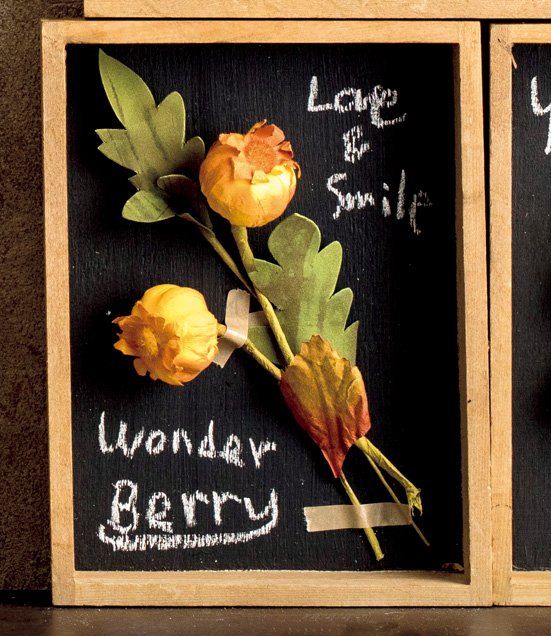 Love
&
Smile
Wonder
Berry